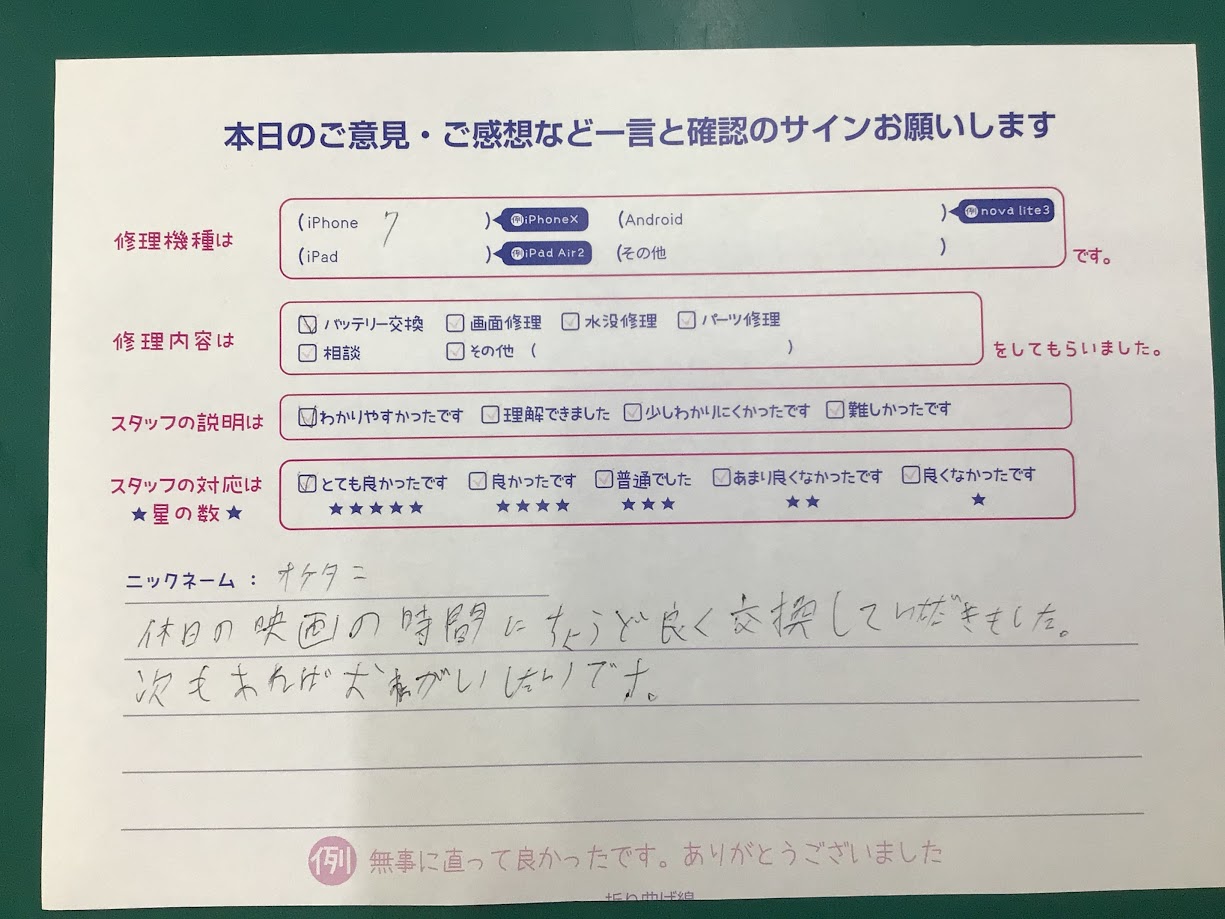 本日のご意見・ご感想など一言と確認のサインお願いします
修理機種は
(iPhone 7 ) 例iPhoneX (Android ) 例nova lite3
(iPad ) 例iPad Air2 (その他 )
です。
修理内容は
バッテリー交換 画面修理 水没修理 パーツ修理
相談 その他 ( )
をしてもらいました。
スタッフの説明は
わかりやすかったです 理解できました 少しわかりにくかったです 難しかったです
スタッフの対応は
★星の数★
とても良かったです 良かったです 普通でした あまり良くなかったです 良くなかったです
★★★★★ ★★★★ ★★★ ★★ ★
ニックネーム: オケタニ
休日の映画の時間にちょうど良く交換していただきました。
次もあればおねがいしたいです。
例 無事に直って良かったです。ありがとうございました
折り曲げ線